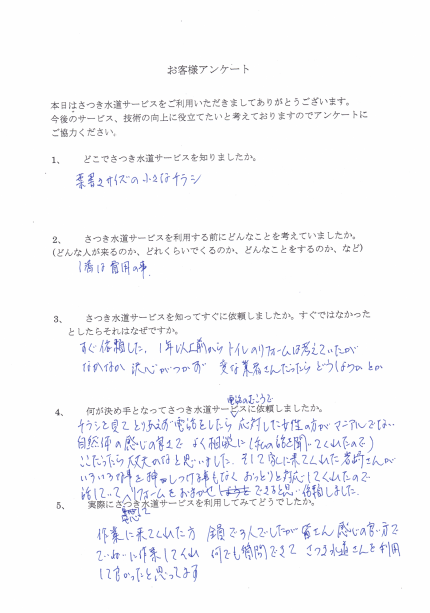 お客様アンケート
本日はさつき水道サービスをご利用いただきましてありがとうございます。
今後のサービス、技術の向上に役立てたいと考えておりますのでアンケートに
ご協力ください。
1、 どこでさつき水道サービスを知りましたか。
葉書きサイズの小さなチラシ
2、 さつき水道サービスを利用する前にどんなことを考えていましたか。
(どんな人が来るのか、どれくらいでくるのか、どんなことをするのか、など)
1番は費用の事
3、 さつき水道サービスを知ってすぐに依頼しましたか。すぐではなかった
としたらそれはなぜですか。
すぐ依頼した、1年以上前からトイレのリフォームは考えていたが
なかなか決心がつかず 変な業者さんだったらどうしようかとか
4、 何が決め手となってさつき水道サービスに依頼しましたか。
電話のむこうで
チラシを見てとりあえず電話をしたら応対した女性の方がマニアルでない
自然体の感じの良さで よく相談に(私の話を聞いてくれたので)
ここだったら大丈夫かなと思いました。そして家に来てくれた岩崎さんが
いろいろな事を押しつける事もなく おっとりと対応してくれたので
話していてリフォームをおまかせ できると思い依頼しました。
5、 実際にさつき水道サービスを利用してみてどうでしたか。
作業に来てくれた方 全員で3人でしたが皆さん感じの良い方で
ていねいに作業してくれ 何でも質問できて さつき水道さんを利用
して良かったと思ってます